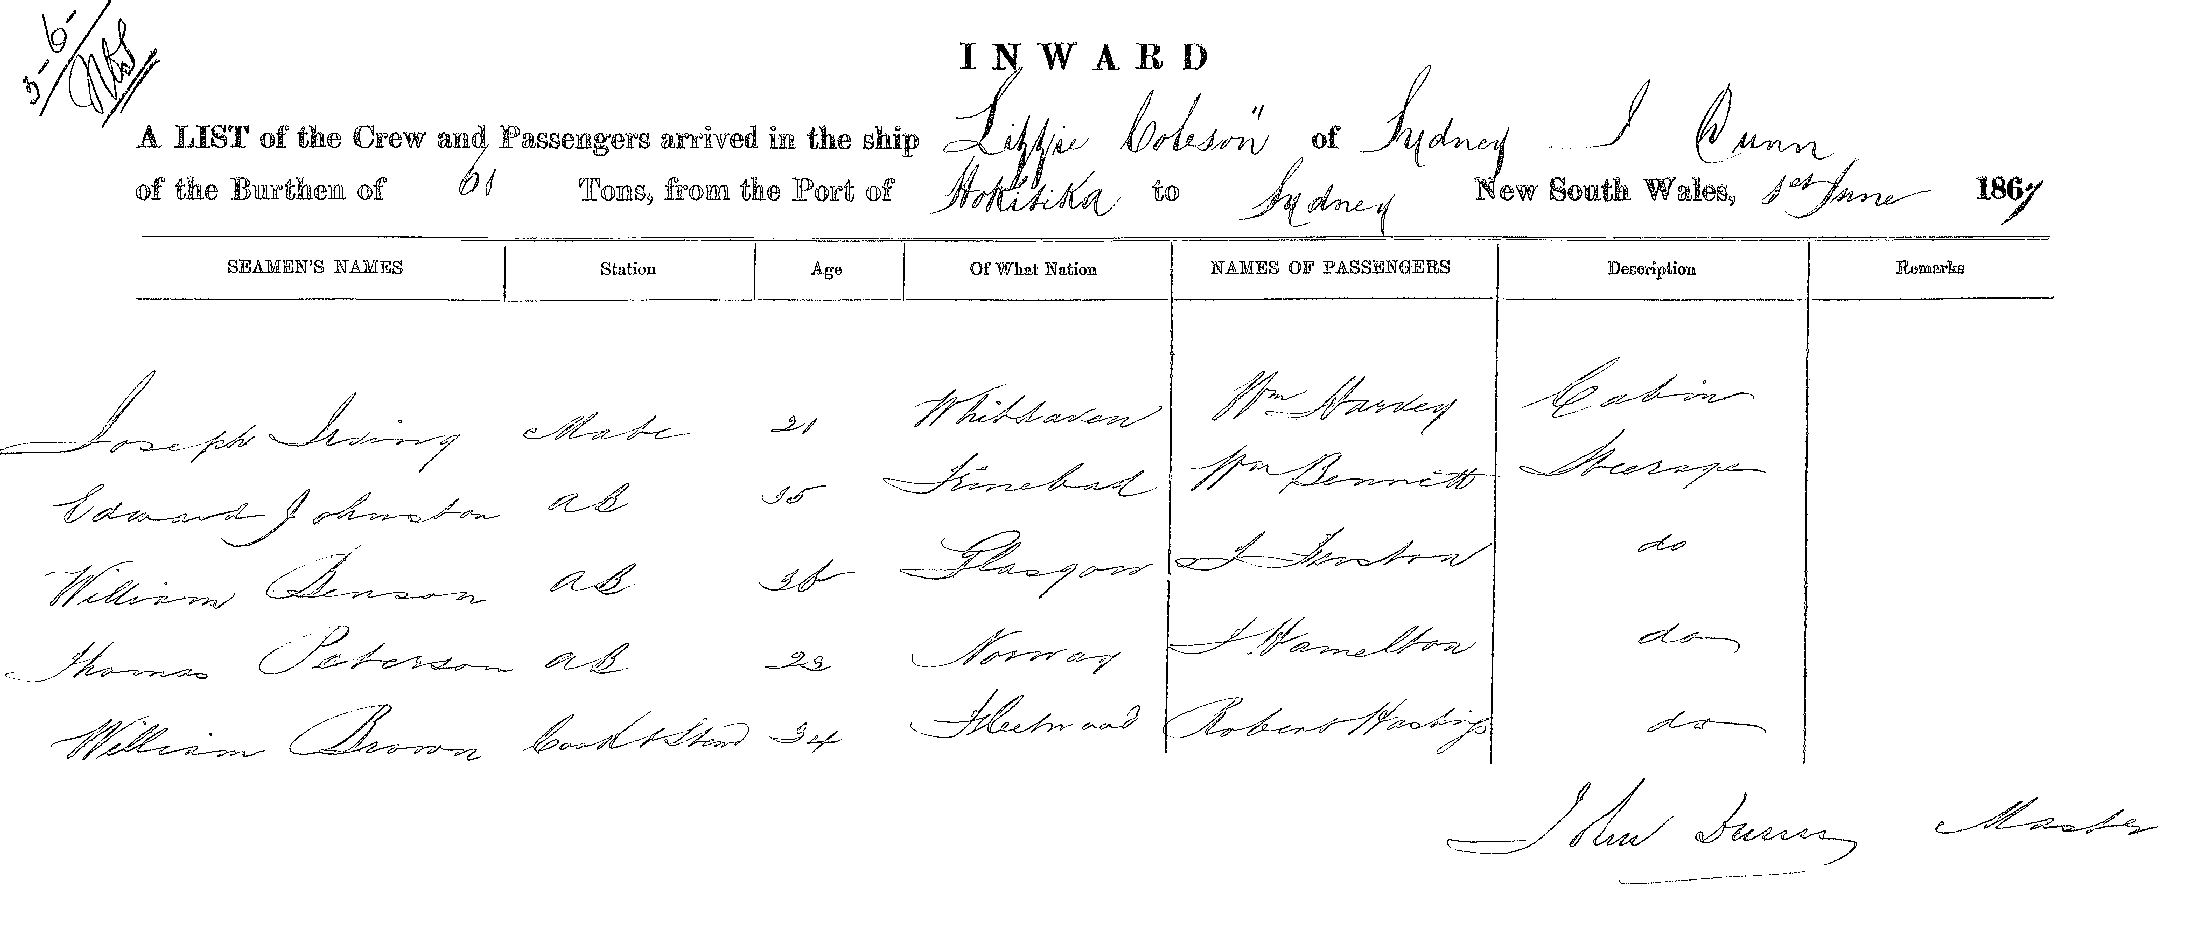 3-6-
INWARD
A LIST of the Crew and Passengers arrived in the ship Lizzie Coleson" of Sydney J Dunn
of the Burthen of 61 Tons, from the Port of Hokitika to Sydney New South Wales, 1st June 1867
SEAMEN'S NAMES Station Age Of What Nation NAMES OF PASSENGERS Description Remarks
Joseph Irving Mate 21 Whithaven Wm Harvey Cabin
Edward Johnston AB 35 Wm Bennett Steerage
William Benson AB Glasgow do
Thomas Peterson AB 22 Norway J. Hamelton do
William Brown Cook & Stewd 34 Fleetwood Robert Hastigs do
John Dunn Master